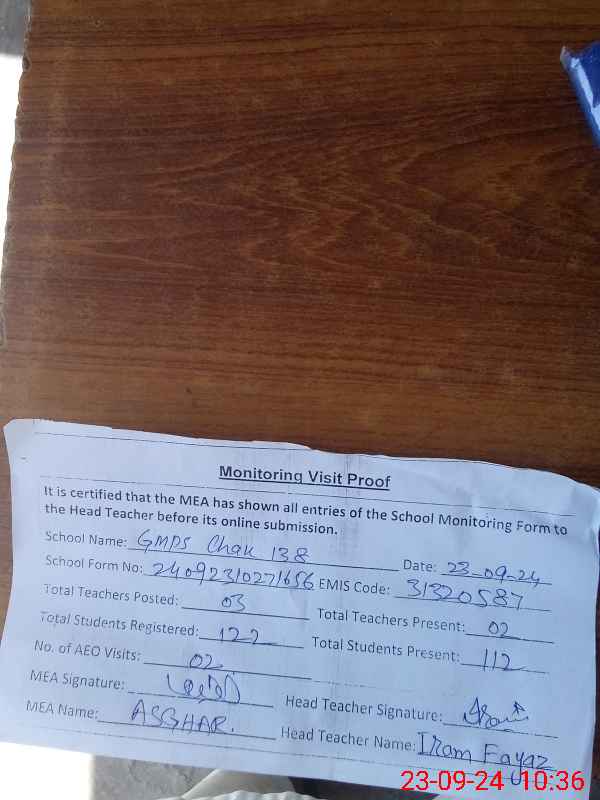 Monitoring Visit Proof
It is certified that the MEA has shown all entries of the School Monitoring Form to
the Head Teacher before its online submission.
School Name: GMPS Chak 138 Date: 23-09-24
School Form No: 24092310271656 EMIS Code: 31320587
Total Teachers Posted: 03 Total Teachers Present: 02
Total Students Registered: 122 Total Students Present: 112
No. of AEO Visits: 02
MEA Signature: Head Teacher Signature:
MEA Name: ASGHAR. Head Teacher Name: Iram Fayaz
23-09-24 10:36